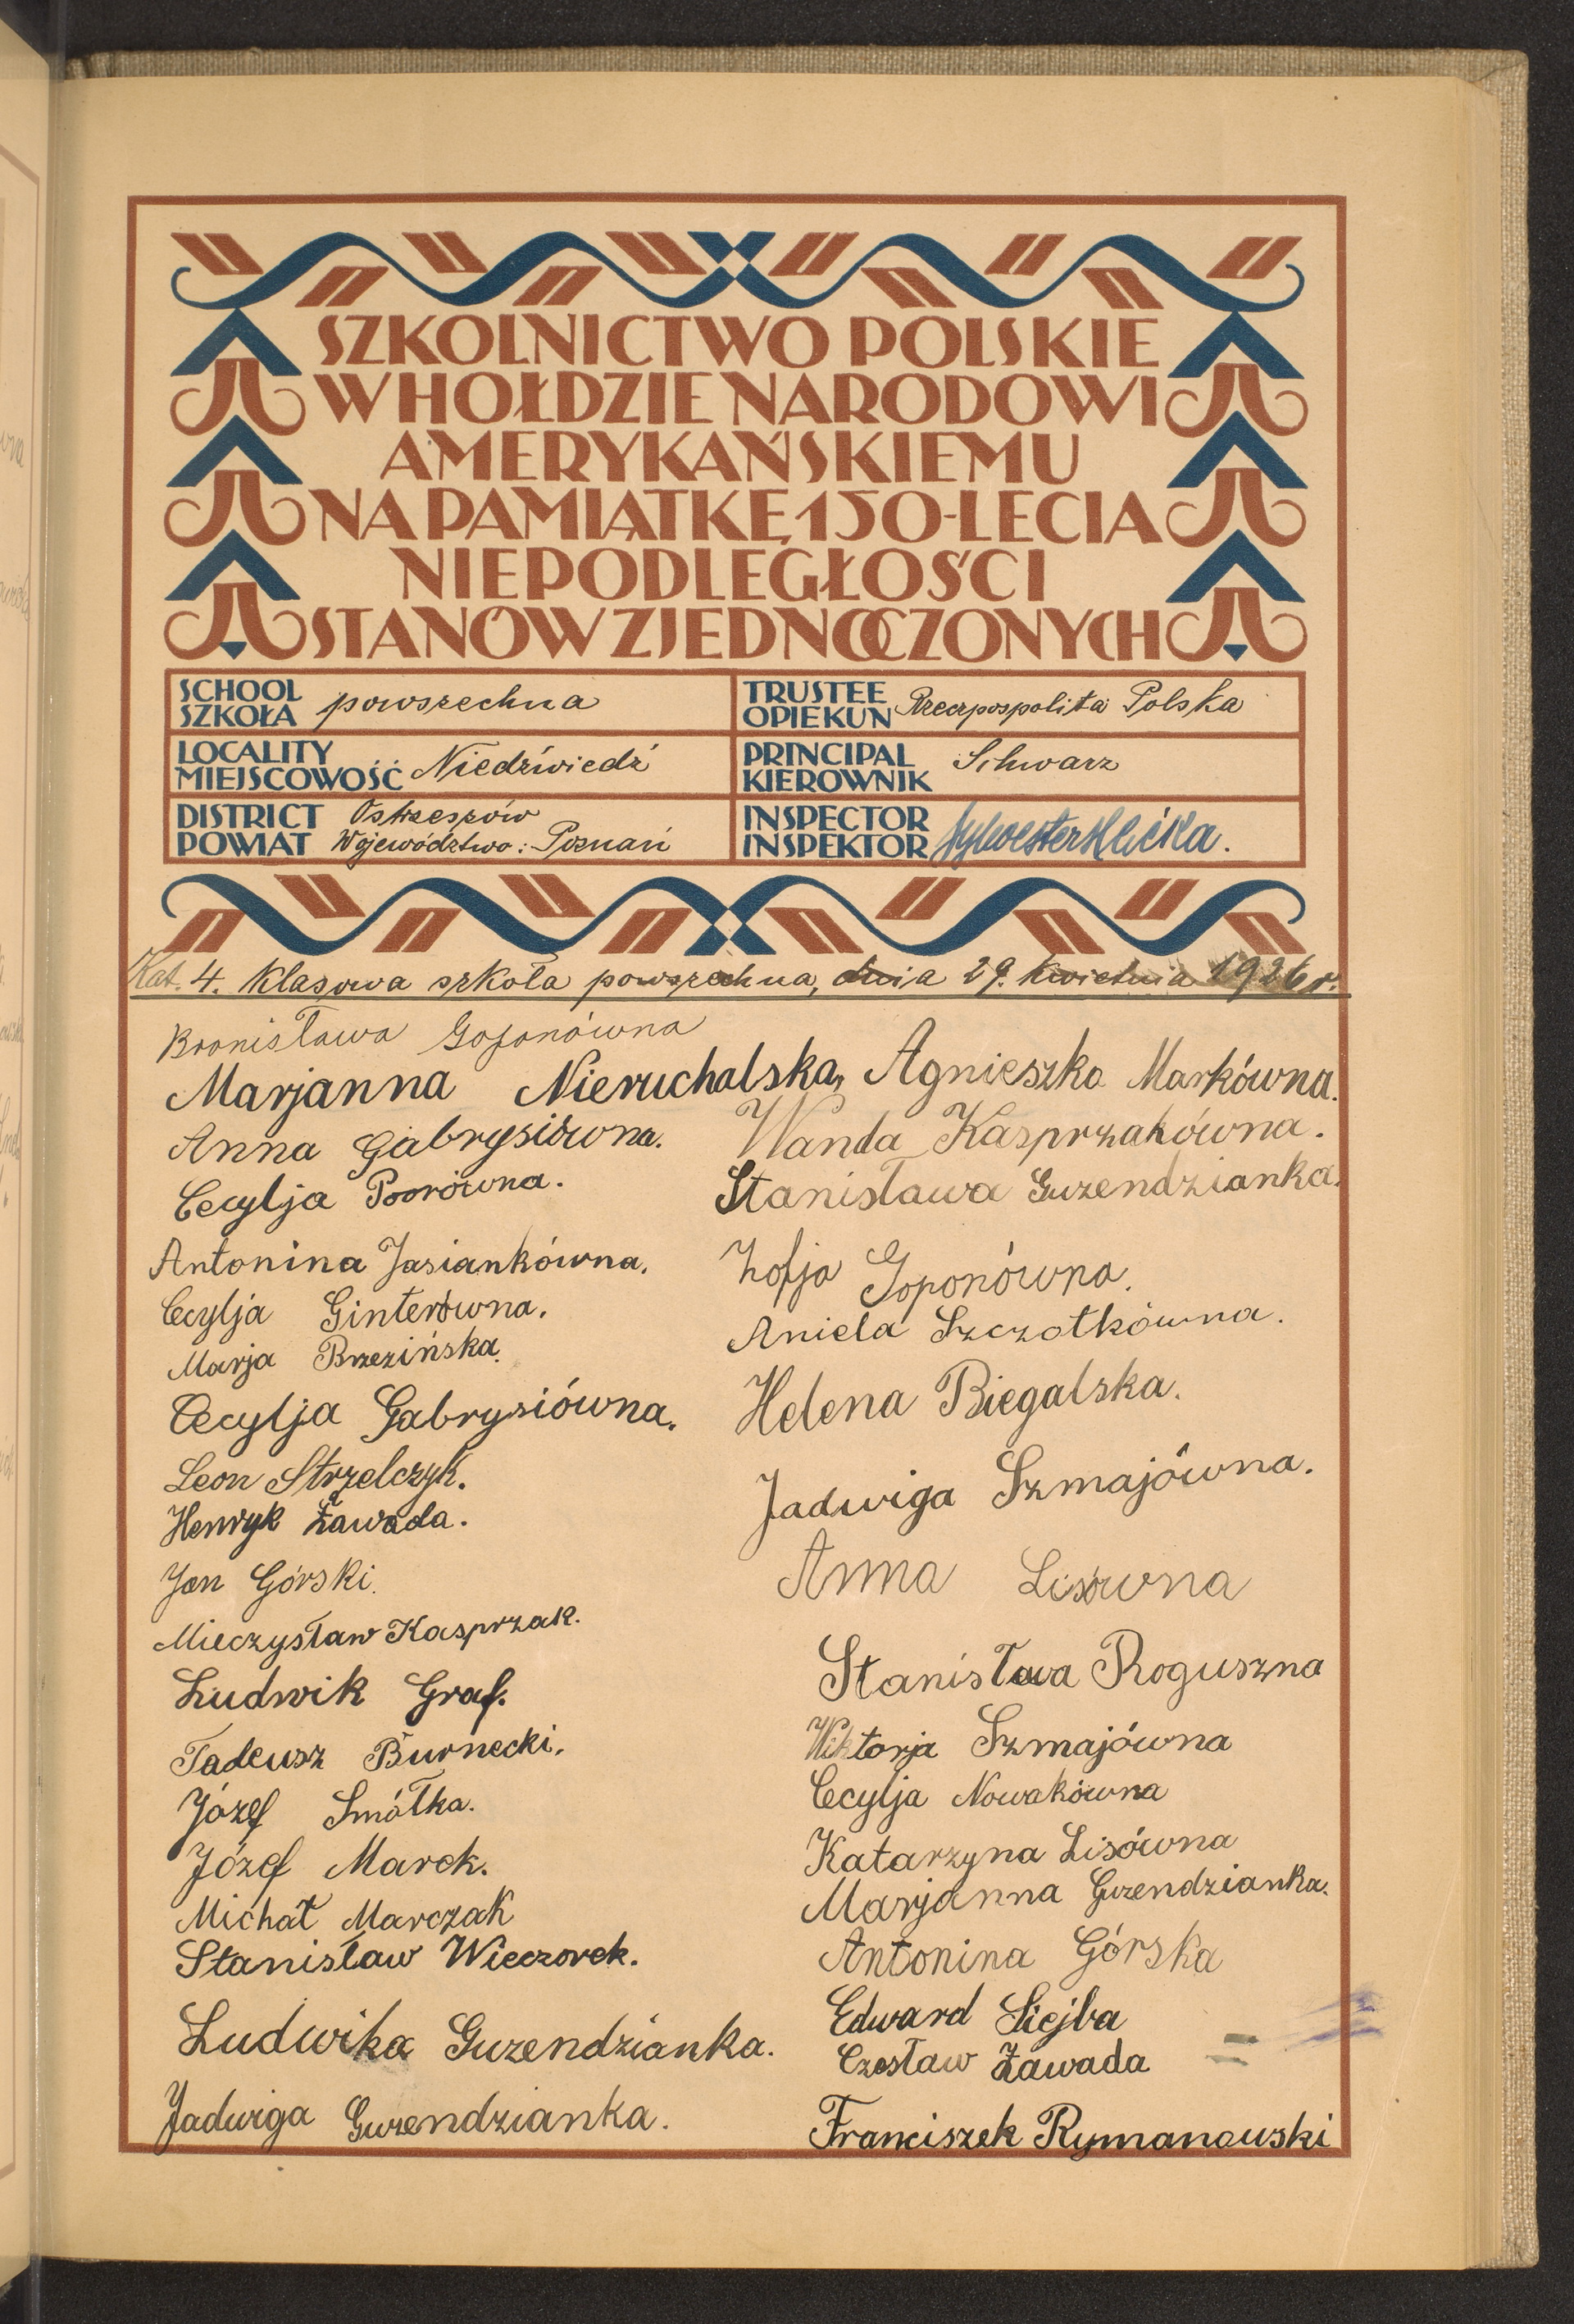 SZKOLNICTWO POLSKIE
W HOŁDZIE NARODOWI
AMERYKAŃSKIEMU
NA PAMIĄTKĘ 150-LECIA
NIEPODLEGŁOŚCI
STANÓW ZJEDNOCZONYCH
SCHOOL
SZKOŁA powszechna
TRUSTEE
OPIEKUN Rzeczpospolita Polska
LOCALITY
MIEJSCOWOŚĆ Niedźwiedź
PRINCIPAL
KIEROWNIK Schwarz
DISTRICT Ostrzeszów
POWIAT Województwo: Poznań
INSPECTOR
INSPEKTOR Sylwester
Kat. 4. Klasowa szkoła powszechna, dnia 29. kwietnia 1926 r.
Bronisława
Marjanna Nieruchalska, Agnieszka Markówna.
Anna Gabrysiówna. Wanda Kasprzakówna.
Cecylja Stanisława Guzendzianka.
Antonina Jasiankówna. Zofja Goponówna.
Cecylja Ginterówna. Aniela Szczotkówna.
Marja Brzezińska.
Cecylja Gabrysiówna. Helena Biegalska.
Leon Strzelczyk.
Henryk Zawada. Jadwiga Szmajówna.
Jan Górski. Anna Lisówna
Mieczysław Kasprzak.
Ludwik Graf. Stanisława Roguszna
Tadeusz Burnecki. Wiktorja Szmajówna
Józef Smółka. Cecylja Nowakówna
Józef Marek. Katarzyna Lisówna
Michał Marczak Marjanna Guzendzianka.
Stanisław Wieczorek. Antonina Górska
Edward Siejba
Ludwika Guzendzianka. Czesław Zawada
Jadwiga Guzendzianka. Franciszek Rymanowski